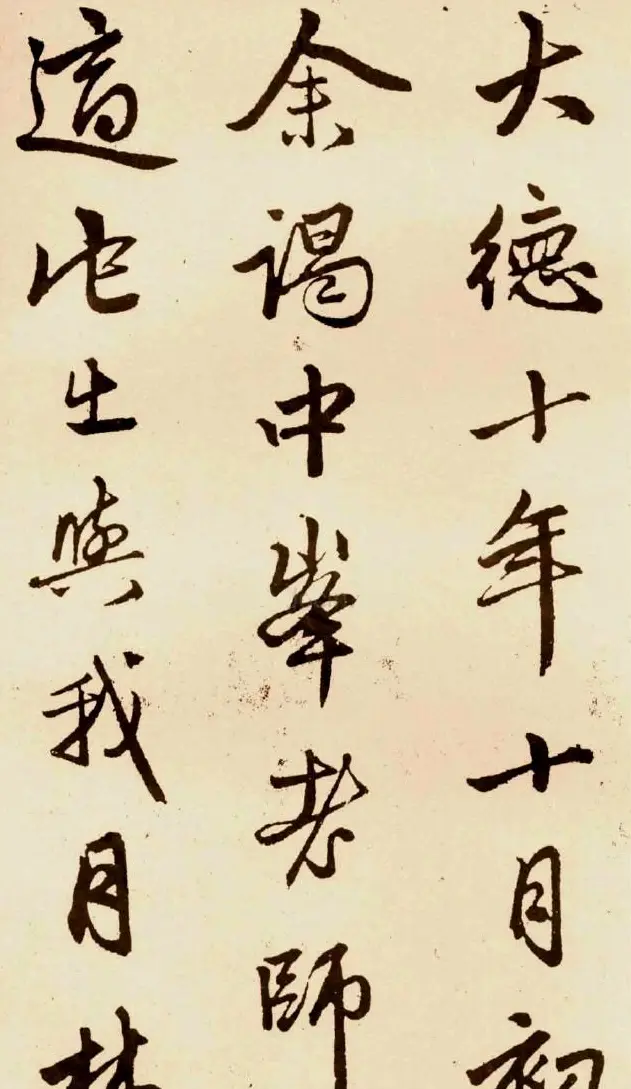 大德十年十月初
余謁中峯老師
適此生與我月林